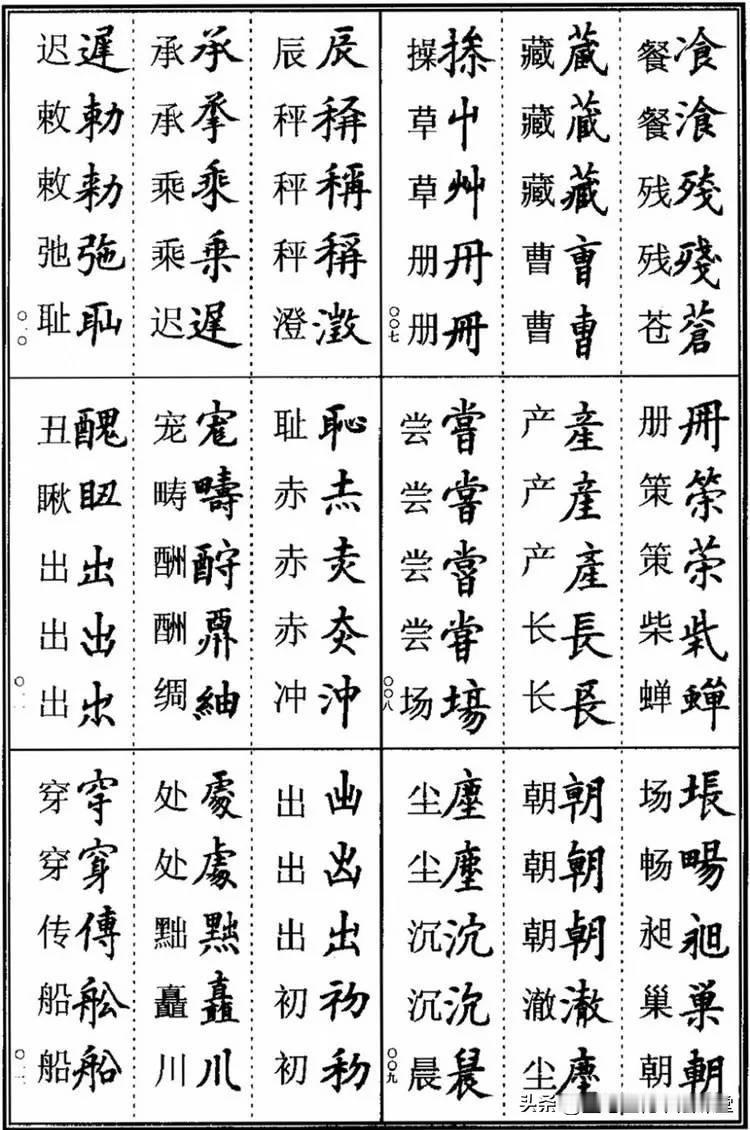 餐飡 餐湌 残殘 残殘 苍蒼
藏蔵 藏蔵 藏藏 曹曺 曹曺
操 草屮 草艸 册冊 册冊
〇〇七
册冊 策筞 策 柴 蝉蟬
产産 产産 产產 长長 长長
尝嘗 尝嘗 尝嘗 尝甞 场塲
〇〇八
场 畅畼 昶昶 巢巣 朝朝
朝朝 朝朝 朝朝 澈澈 尘塵
尘塵 尘塵 沉沉 沉沉 晨晨
〇〇九
辰辰 秤稱 秤稱 秤稱 澄澂
承承 承承 乘乗 乘乗 迟遲
迟遲 敕勅 敕勅 弛㢮 耻耻
〇一〇
耻恥 赤 赤 赤 冲沖
宠寵 畴疇 酬酧 酬 绸紬
丑醜 瞅 出出 出出 出出
〇一一
出出 出出 出出 初初 初初
处處 处處 黜黜 矗矗 川川
穿穿 穿穿 传傳 船舩 船船
〇一二
头条